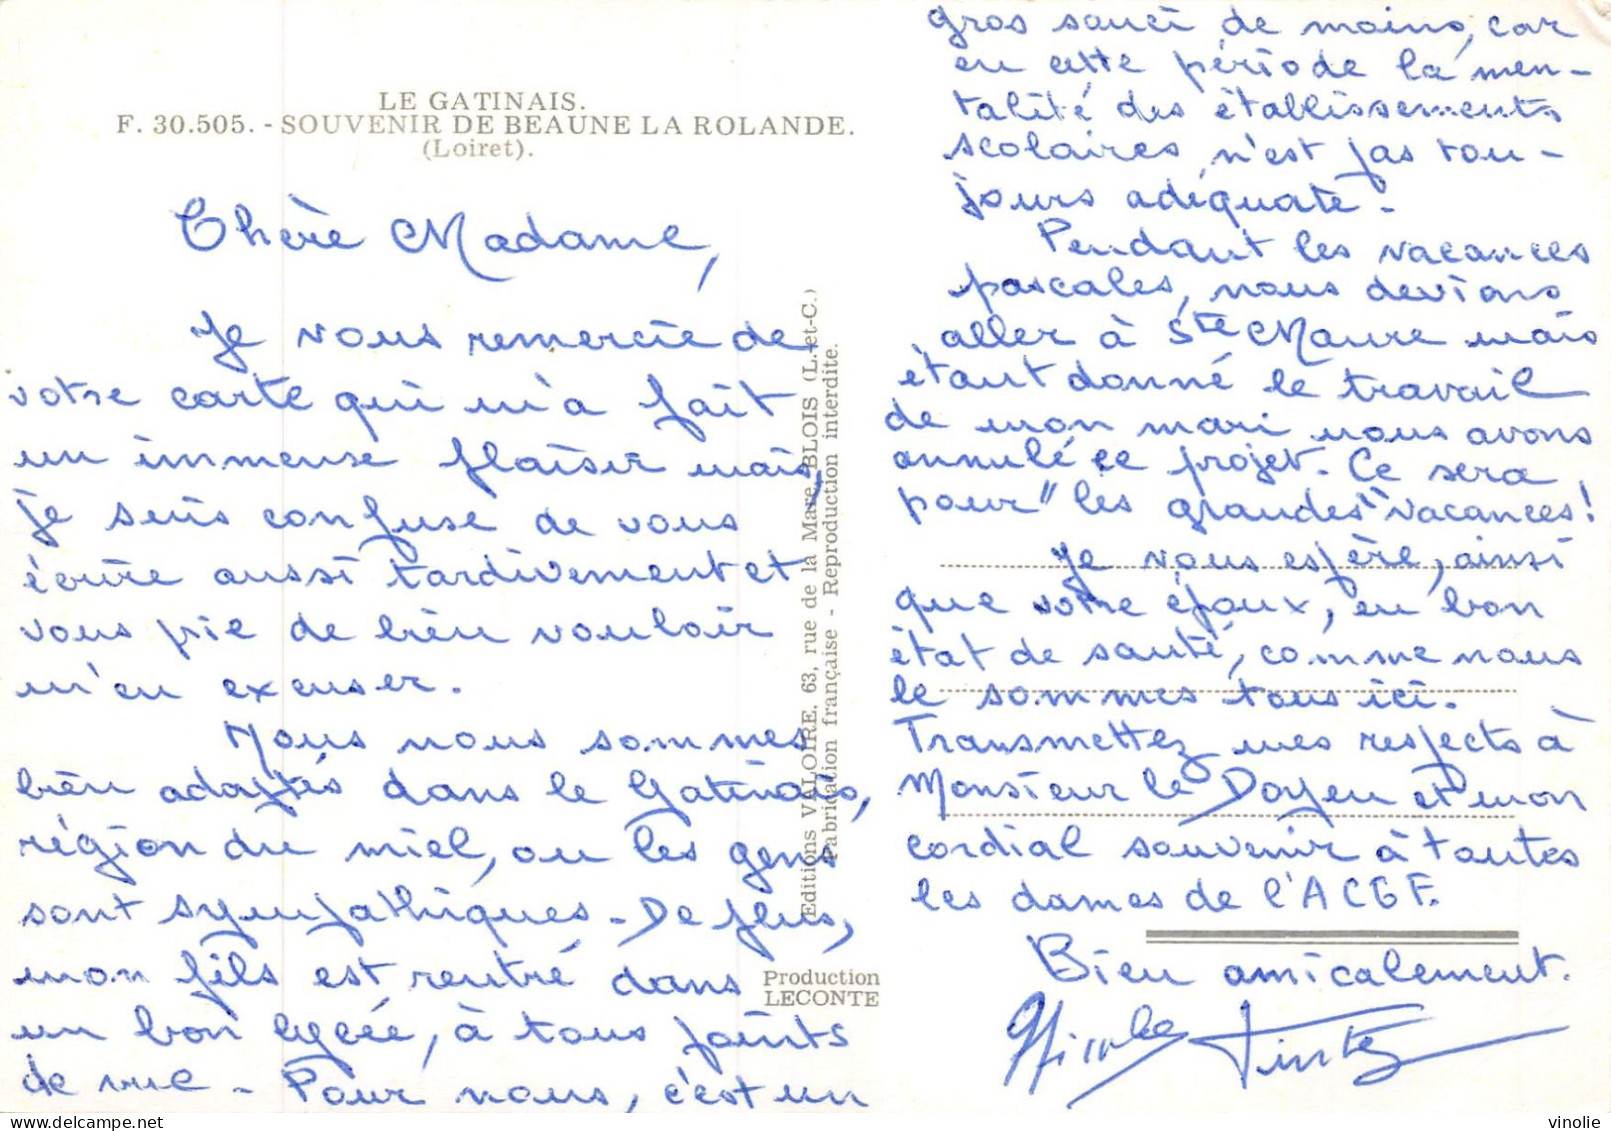 LE GATINAIS.
F. 30.505. - SOUVENIR DE BEAUNE LA ROLANDE.
(Loiret).
Chère Madame,
Je vous remercie de
votre carte qui m'a fait
un immense plaisir mais,
je suis confuse de vous
écrire aussi tardivement et
vous prie de bien vouloir
m'en excuser.
Nous nous sommes
bien adaptés dans le Gatinais,
région du miel, ou les gens
sont sympathiques - De plus,
mon fils est rentré dans
un bon lycée, à tous points
de vue - Pour nous, c'est un
gros souci de moins, car
en cette période la men-
talité des établissements
scolaires n'est pas tou-
jours adéquate -
Pendant les vacances
pascales, nous devions
aller à Ste Maure mais
étant donné le travail
de mon mari nous avons
annulé ce projet. Ce sera
pour "les grandes" vacances!
Je vous espère, ainsi
que votre époux, en bon
état de santé, comme nous
le sommes tous ici.
Transmettez mes respects à
Monsieur le Doyen et mon
cordial souvenir à toutes
les dames de l'ACGF.
Bien amicalement.
Editions VALOIRE, 63, rue de la Mare, BLOIS (L.-et-C.)
Fabrication française - Reproduction interdite.
Production
LECONTE
vinolie